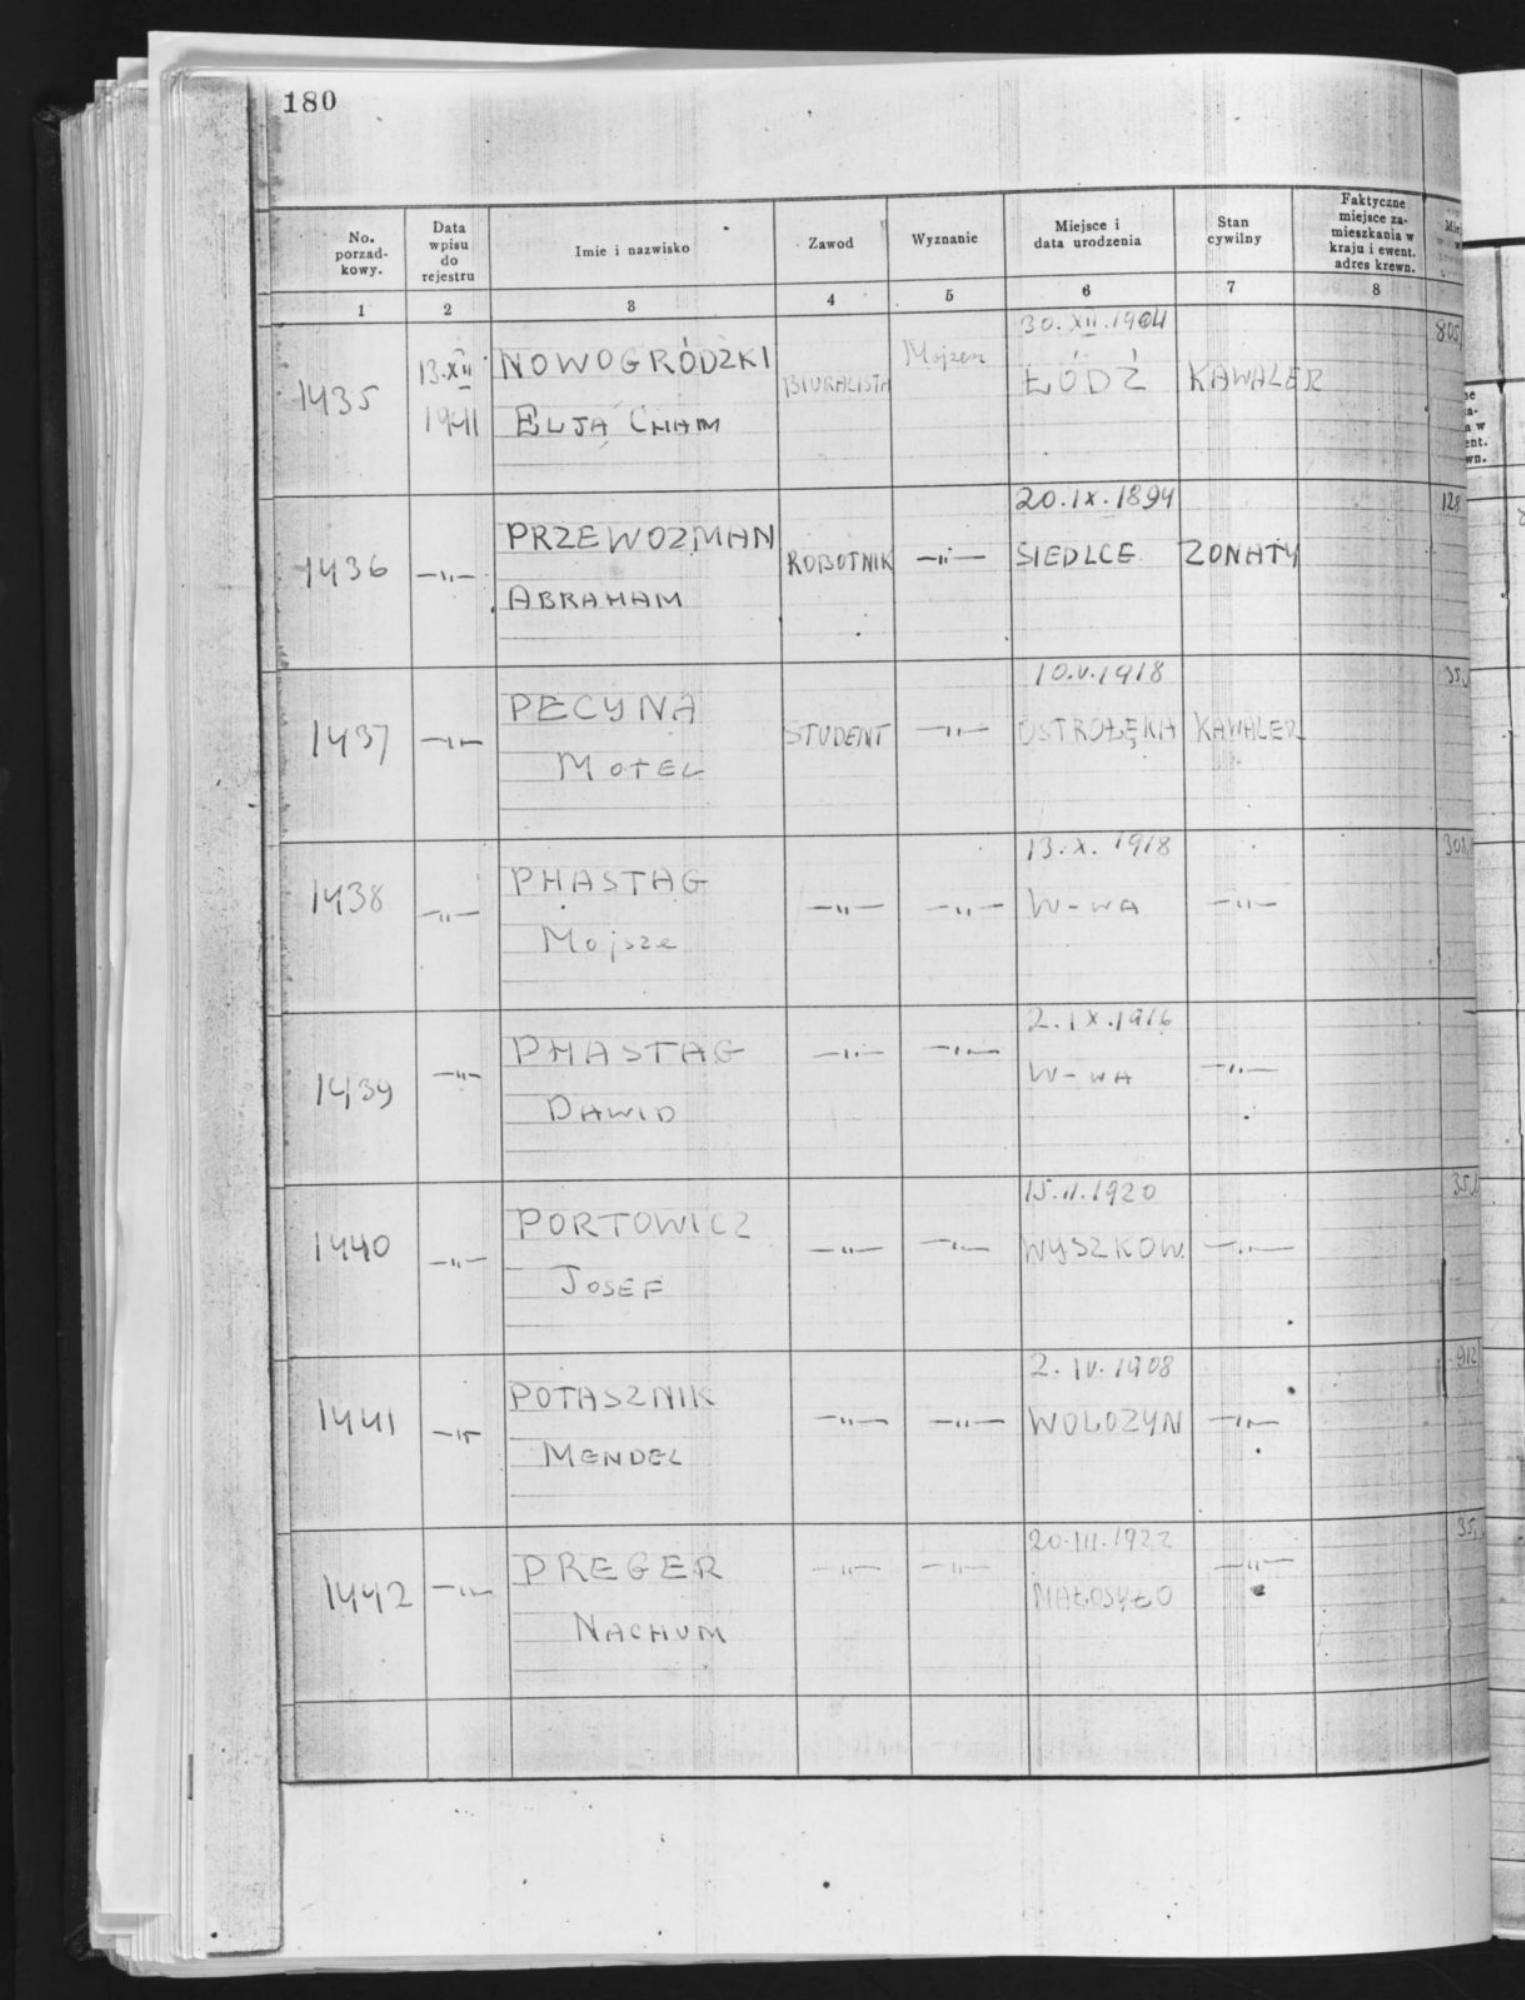 180
No. porzad- kowy.
Data wpisu do rejestru
Imie i nazwisko
Zawod
Wyznanie
Miejsce i data urodzenia
Stan cywilny
Faktyczne miejsce za- mieszkania w kraju i ewent. adres krewn.
1 2 3 4 5 6 7 8
30.XII.1904
1435 13.XII NOWOGRÓDZKI BIURALISTA Mojżesz ŁÓDŹ KAWALER
1941 ELJA CHAIM
20.IX.1894 128
1436 —"— PRZEWOZMAN ROBOTNIK —"— SIEDLCE ZONATY
ABRAHAM
10.V.1918 35
1437 —"— PECYNA STUDENT —"— OSTROŁĘKA KAWALER
MOTEL
13.X.1918
1438 —"— PHASTAG —"— —"— W-WA —"—
Mojsze
2.IX.1916
1439 —"— PHASTAG —"— —"— W-WA —"—
DAWID
15.II.1920
1440 —"— PORTOWICZ —"— —"— WYSZKOW. —"—
JOSEF
2.IV.1908
1441 —"— POTASZNIK —"— —"— WOLOZYN —"—
MENDEL
20.III.1922 35
1442 —"— PREGER —"— —"— —"—
NACHUM